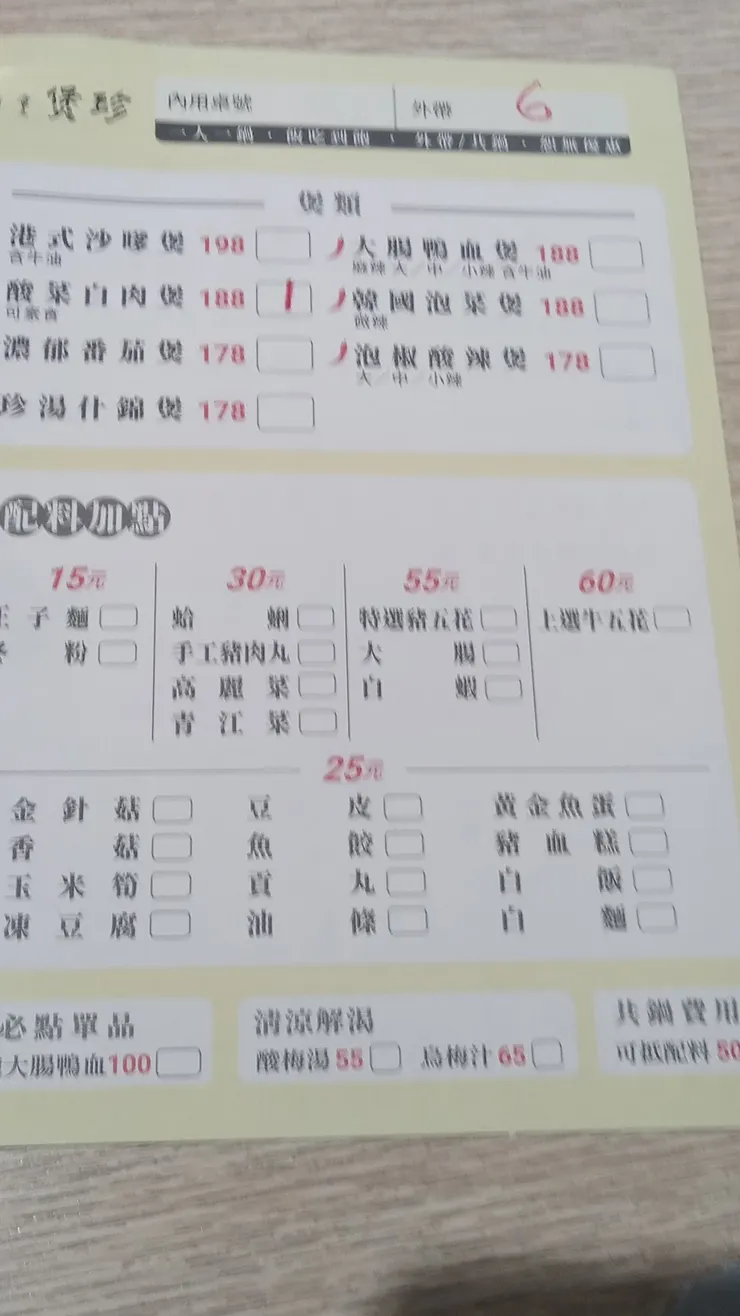 煲珍 內用桌號 外帶 6
一人一鍋，飯吃到飽，外帶/共鍋，恕無優惠
煲類
港式沙嗲煲 198
含牛油
大腸鴨血煲 188
麻辣 大／中／小辣 含牛油
酸菜白肉煲 188 1
可素食
韓國泡菜煲 188
微辣
濃郁番茄煲 178
泡椒酸辣煲 178
大／中／小辣
珍湯什錦煲 178
配料加點
15元 30元 55元 60元
子麵 蛤蜊 特選豬五花 上選牛五花
粉 手工豬肉丸 大腸
高麗菜 白蝦
青江菜
25元
金針菇 豆皮 黃金魚蛋
香菇 魚餃 豬血糕
玉米筍 貢丸 白飯
凍豆腐 油條 白麵
必點單品 清涼解渴 共鍋費用
大腸鴨血100 酸梅湯55 烏梅汁65 可抵配料50